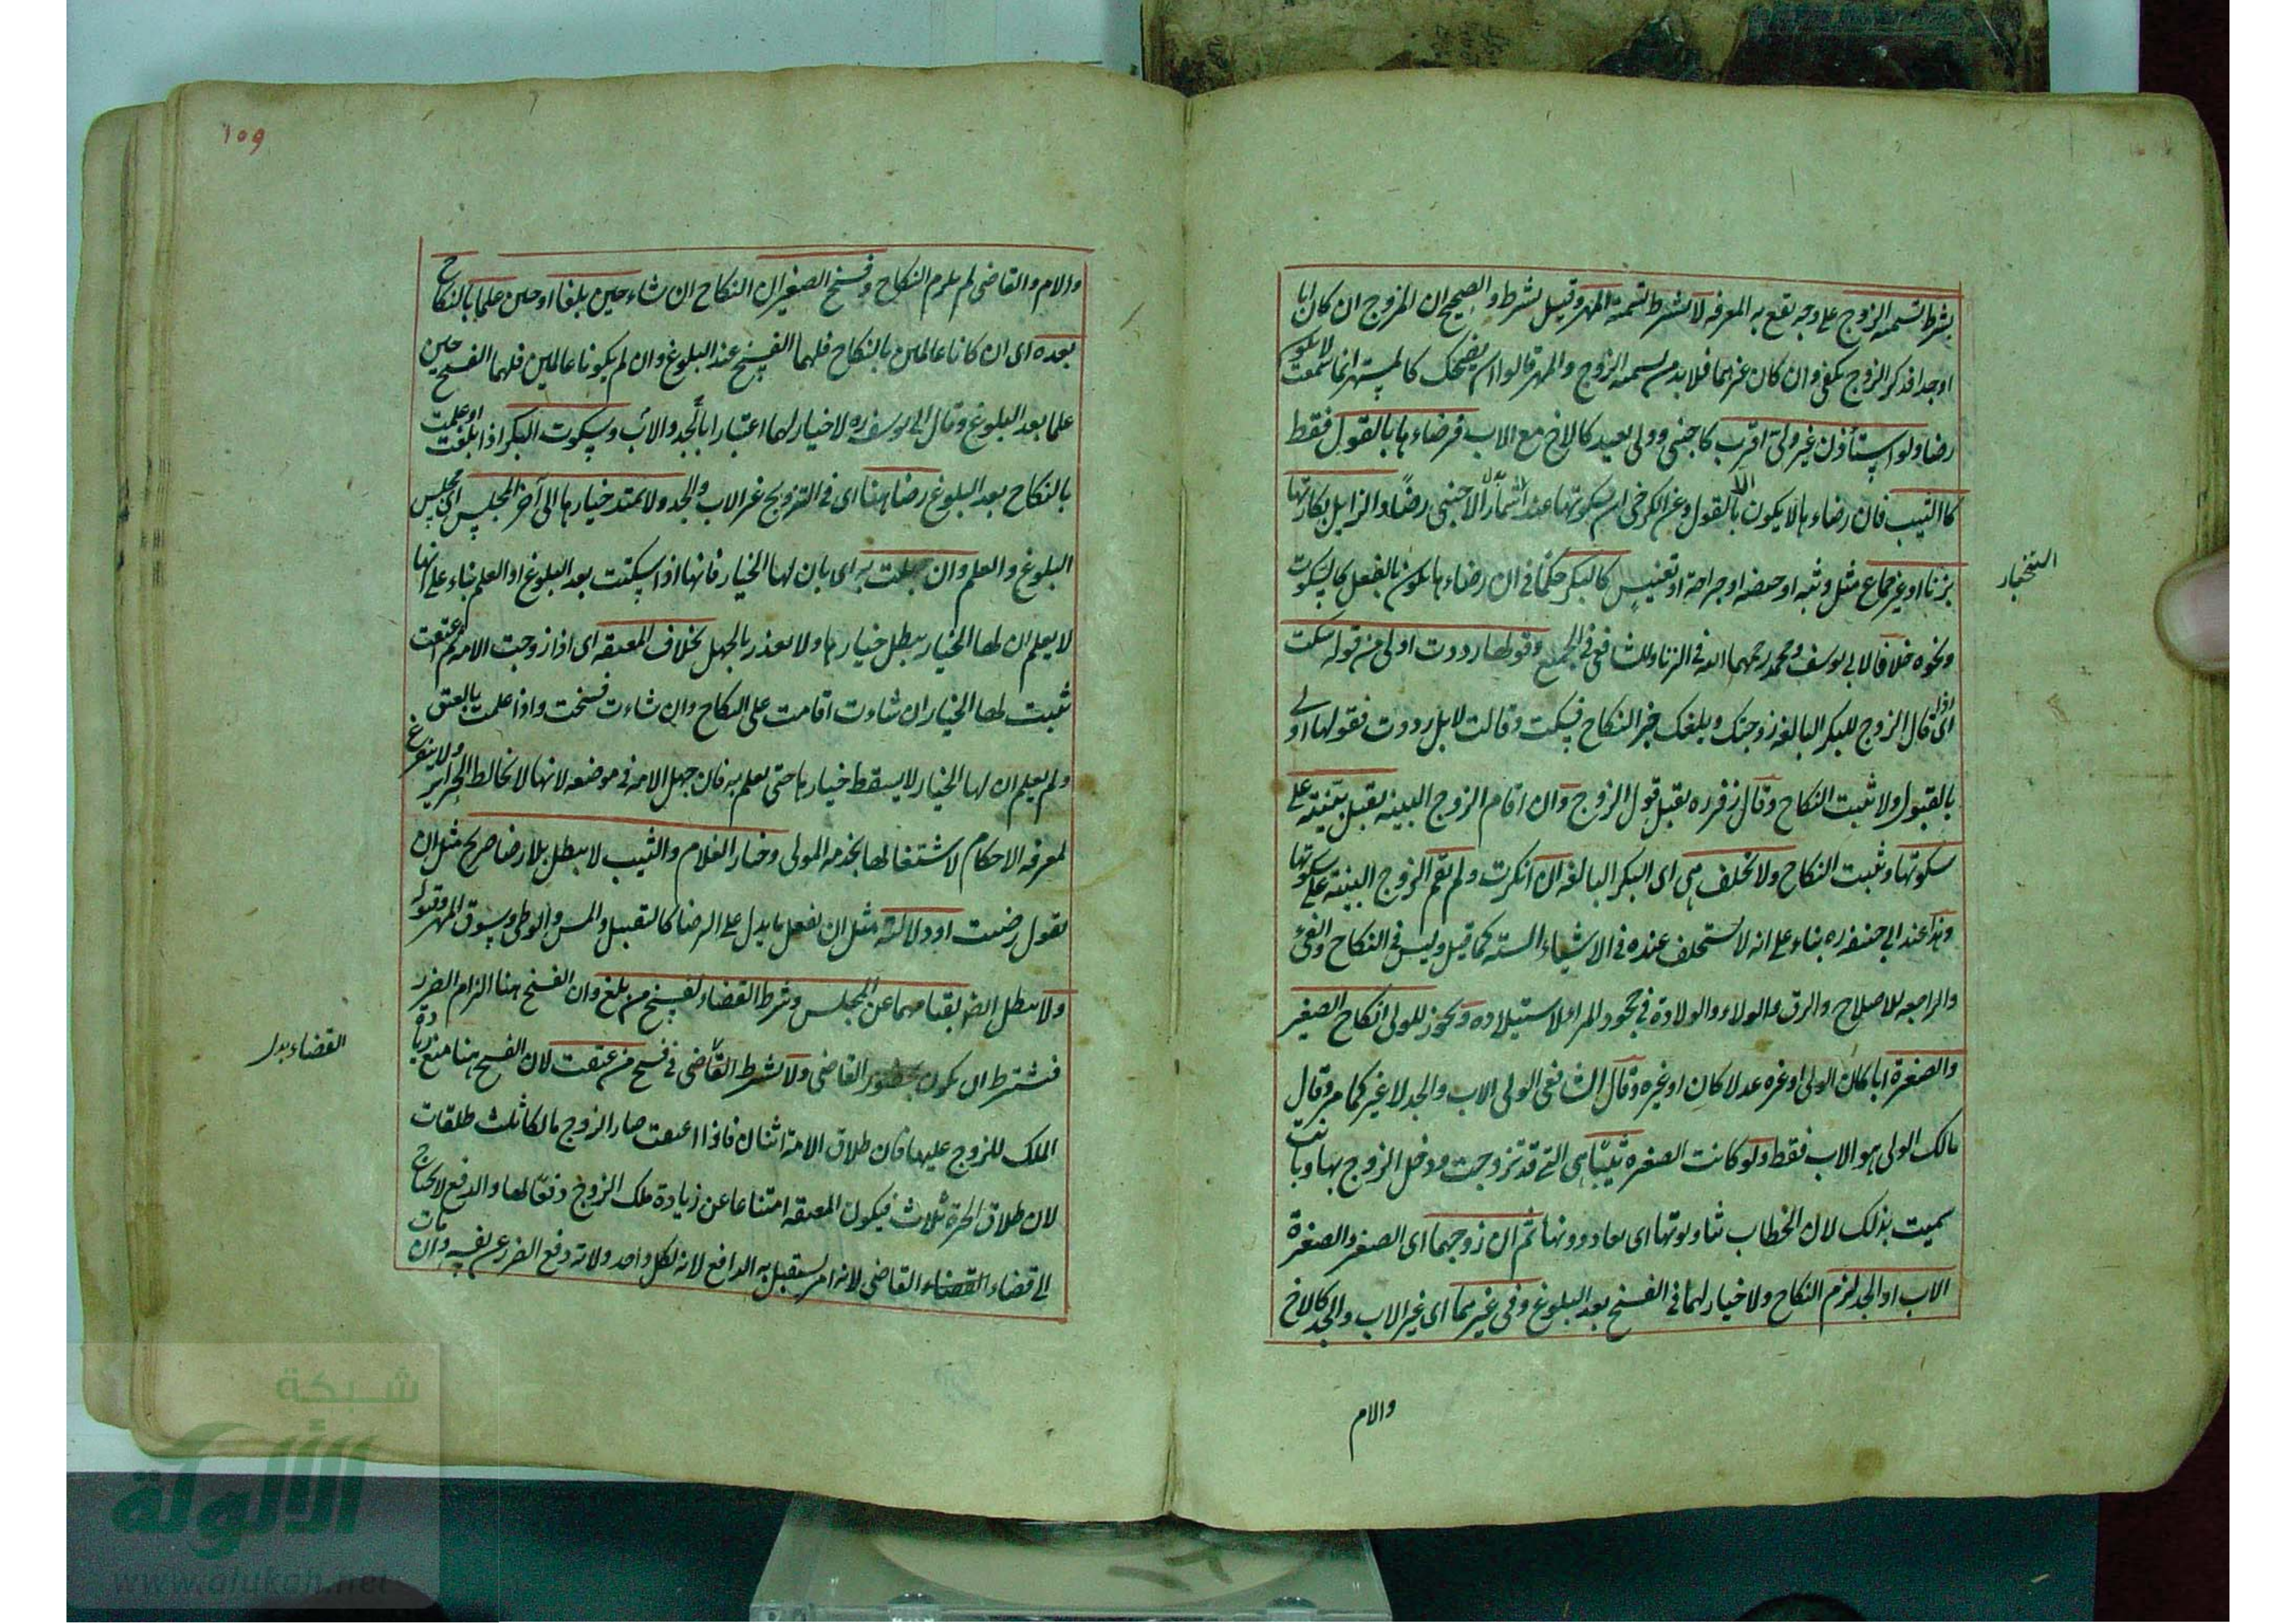 يشرط تسمية الزوج على وجه يقع به المعرفة لا يشرط تسمية المهر وقيل يشرط والصحيح ان المزوج ان كان ابا
او جدا فذكر الزوج يكفى وان كان غيرهما فلا بد من تسمية الزوج والمهر قالوا ان يضحك كالمستهزء لما سمعت لا يكون
رضا ولو استأذن غير ولى اقرب كاجنبى وولى بعيد كالاخ مع الاب فرضاءها بالقول فقط
كالثيب فان رضاءها لا يكون الا بالقول وعن الكرخى ان سكوتها عند استئمار الاجنبى رضا والزايل بكارتها
بزنا او غير جماع مثل وثبة او حيضة او جراحة او تعنيس كالبكر حكما فى ان رضاءها يكون بالفعل كالسكوت
ونحوه خلافا لابى يوسف ومحمد رحمهما الله فى الزنا وللشافعى فى الجميع وقولها رددت اولى من قوله سكت
اى اذا قال الزوج للبكر البالغة زوجتك وبلغك خبر النكاح فسكت وقالت لا بل رددت فقولها اولى
بالقبول ولا يثبت النكاح وقال زفر ره يقبل قول الزوج وان اقام الزوج البينة يقبل بينته على
سكوتها ويثبت النكاح ولا تحلف هى اى البكر البالغة ان انكرت ولم يقم الزوج البينة على سكوتها
وهذا عند ابى حنيفة ره بناء على انه لا يستحلف عنده فى الاشياء الستة كما قيل وليس فى النكاح والفئ
والراجعه للاصلاح والرق والولاء والولادة فى جحود المراو لاستيلاده ويجوز للولى انكاح الصغير
والصغيرة ابا كان الولى او غيره عدلا كان او غيره وقال الشافعى الولى الاب والجد لا غير كما مر وقال
مالك الولى هو الاب فقط ولو كانت الصغيرة ثيبا هى التى قد تزوجت ودخل الزوج بها وبانت
سميت بذلك لان الخطاب ثم ان زوجهما اى الصغير والصغيرة
الاب او الجد لزم النكاح ولا خيار لهما فى الفسخ بعد البلوغ وفى غيرهما اى غير الاب والجد كالاخ
والام
١٥٩
والام والقاضى لم يلزم النكاح وفسخ الصغيران النكاح ان شاء حين بلغا او حين علما بالنكاح
بعده اى ان كانا عالمين بالنكاح فلهما الفسخ عند البلوغ وان لم يكونا عالمين فلهما الفسخ حين
علما بعد البلوغ وقال ابى يوسف ره لا خيار لهما اعتبارا بالجد والاب وسكوت البكر اذا بلغت او علمت
بالنكاح بعد البلوغ رضا هنا اى فى التزويج غير الاب والجد ولا يمتد خيارها الى آخر المجلس اى مجلس
البلوغ والعلم وان جهلت به اى بان لها الخيار فانها اذا سكتت بعد البلوغ او العلم بناء على انها
لا يعلم ان لها الخيار يبطل خيارها ولا يعذر بالجهل بخلاف المعتقة اى اذا زوجت الامة ثم اعتقت
ثبت لها الخيار ان شاءت اقامت على النكاح وان شاءت فسخت واذا علمت بالعتق
ولم يعلم ان لها الخيار لا يسقط خيارها حتى يعلم به فان جهل الامة فى موضعه لانها لا تخالط الحراير ولا يتفرغ
لمعرفة الاحكام لاشتغالها بخدمة المولى وخيار الغلام والثيب لا يبطل بلا رضا صريح مثل ان
يقول رضيت او دلالته مثل ان يفعل ما يدل على الرضا كالتقبيل والمس والوطى وسوق المهر وقبوله
ولا يبطل ايضا بقيامهما عن المجلس وشرط القضاء لفسخ من بلغ وان الفسخ هنا الزام الضرر
فيشترط ان يكون بحضور القاضى ولا يشرط القاضى فى فسخ من عتقت لان الفسخ هنا منع زيادة
الملك للزوج عليها فان طلاق الامة اثنان فاذا اعتقت صار الزوج مالكا ثلث طلقات
لان طلاق الحرة ثلاث فيكون المعتقة امتناعا عن زيادة ملك الزوج دفعا لها والدفع لا يحتاج
الى قضاء القضاء القاضى لانه امر يستقبل به الدافع لانه لكل واحد ولاية دفع الضرر عن نفسه وان مات
القضاء بدل
شبكة
الألوكة
www.alukah.net